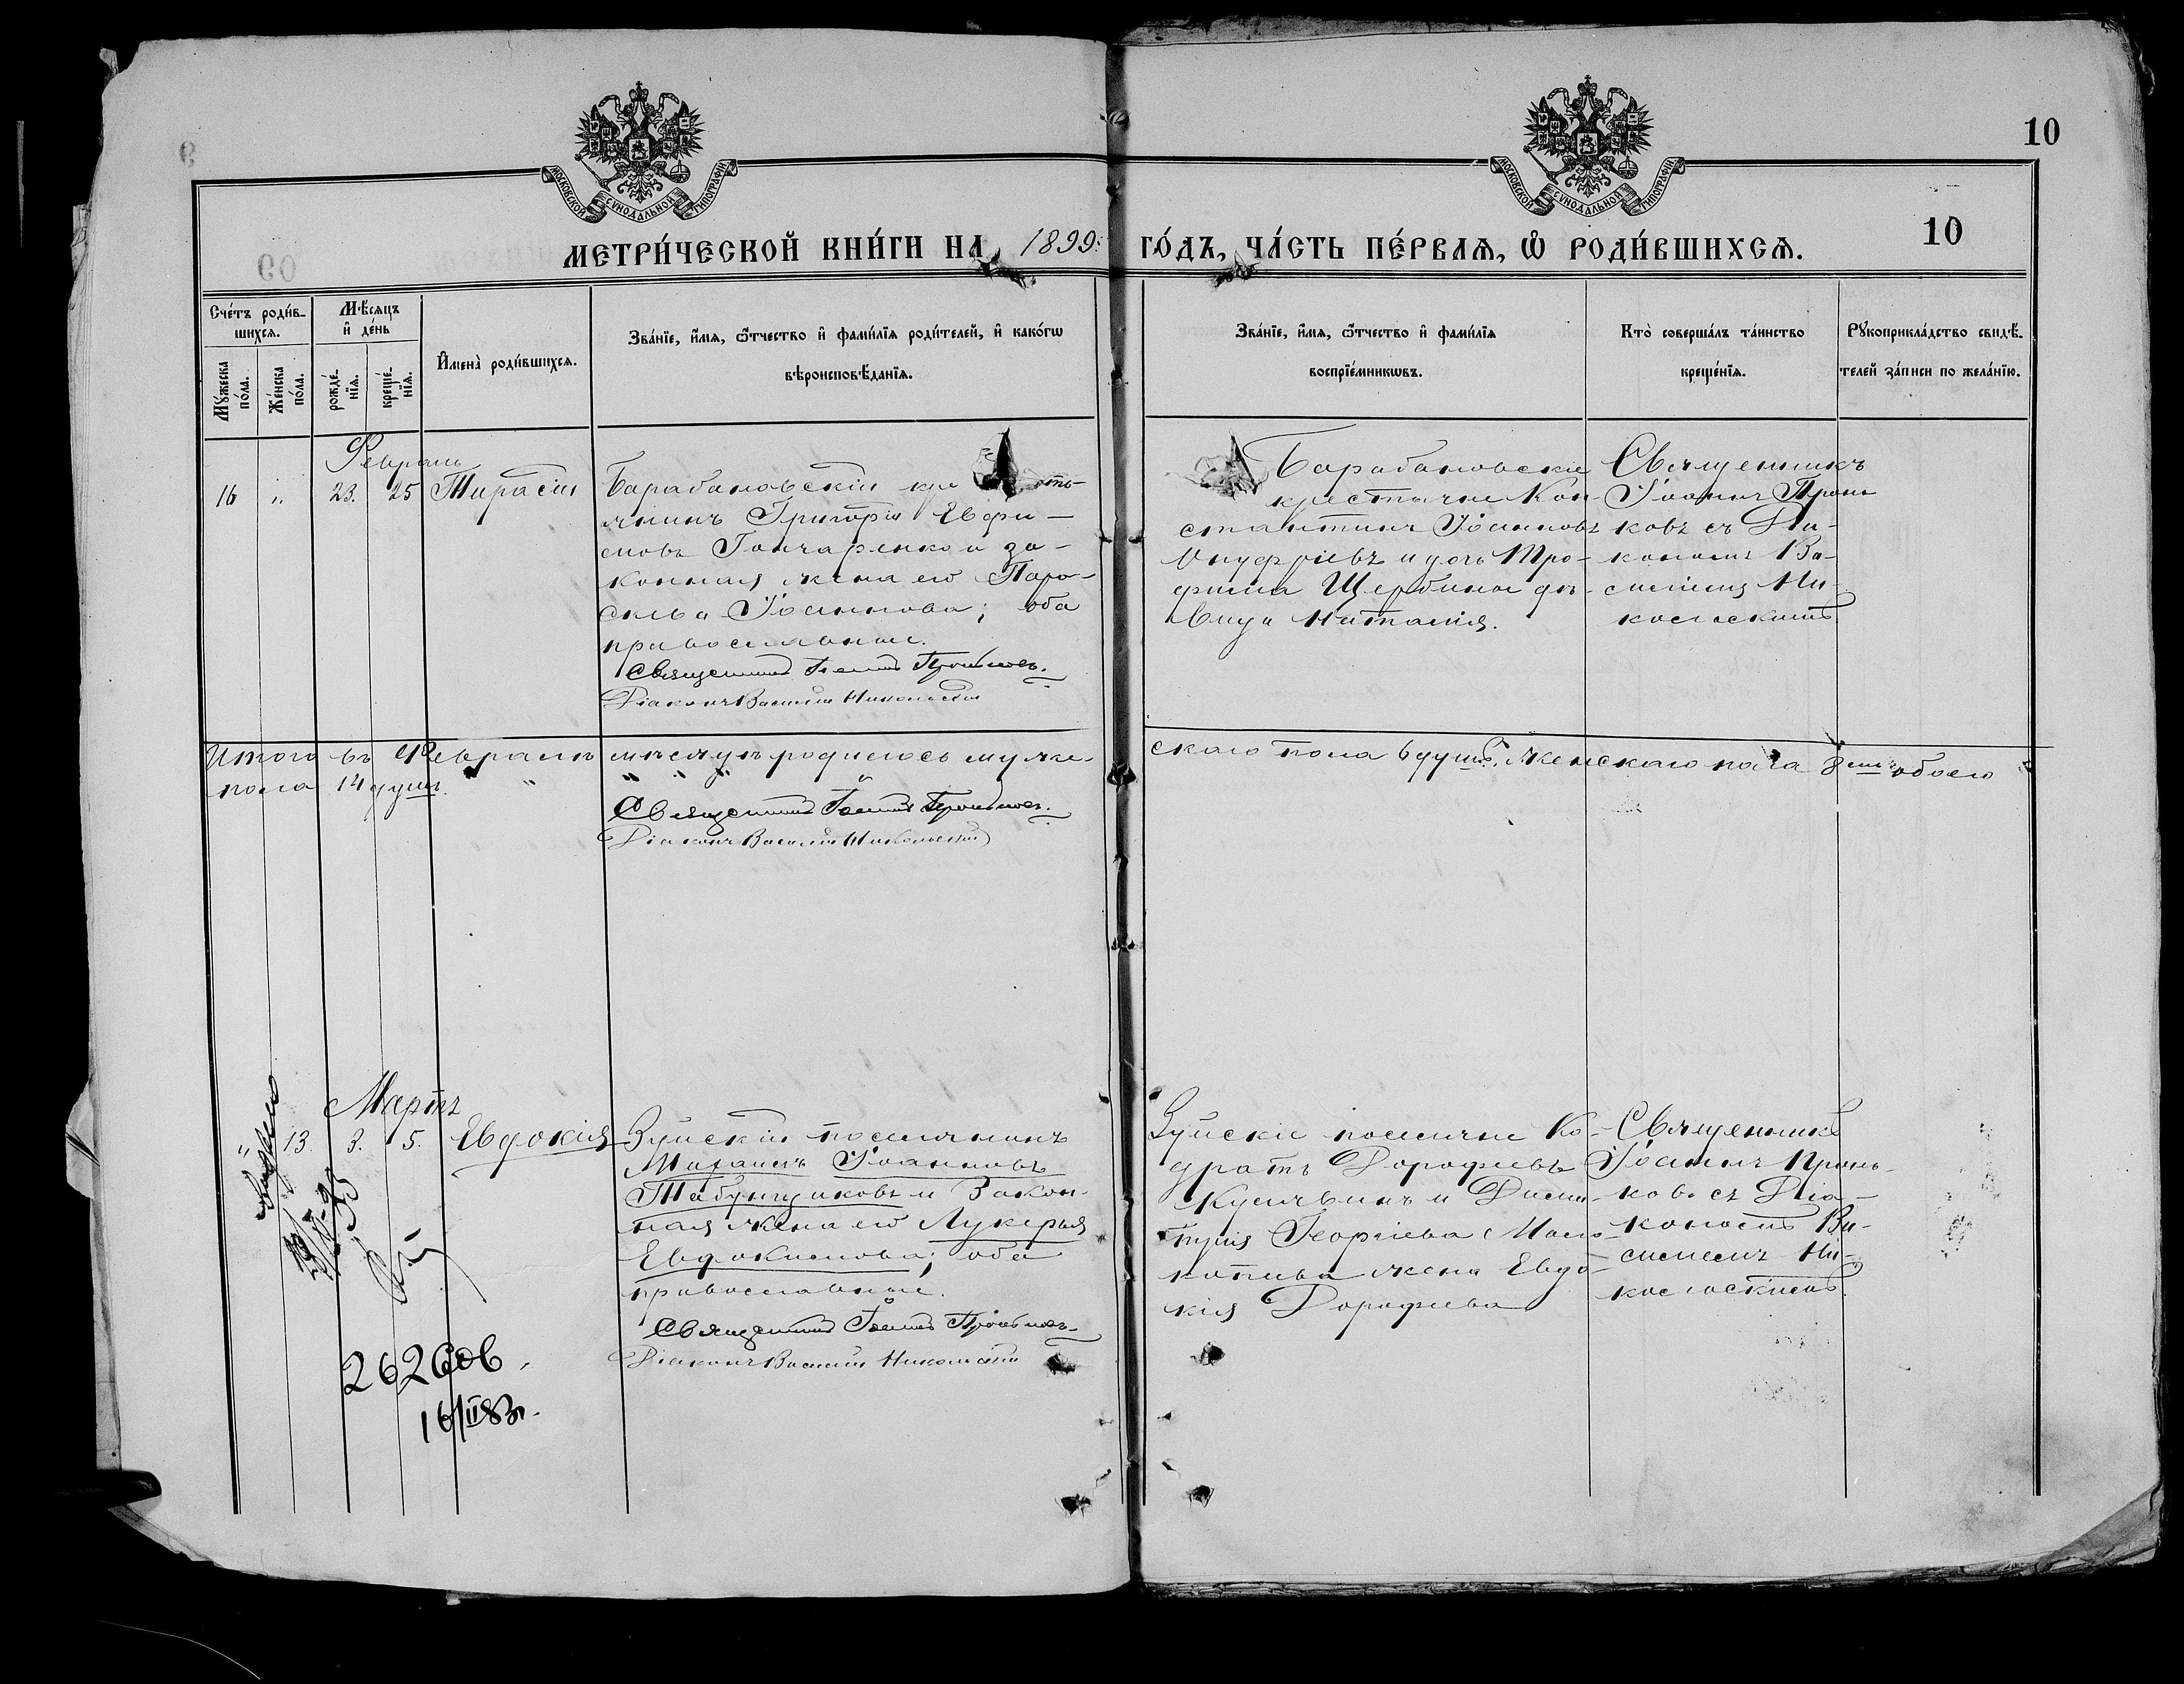 10
МОСКОВСКОЙ СѴНОДАЛЬНОЙ ТИПОГРАФІИ
МОСКОВСКОЙ СѴНОДАЛЬНОЙ ТИПОГРАФІИ
10
МЕТРИ́ЧЕСКОЙ КНИ́ГИ НА 1899 ГО́ДЪ, ЧА́СТЬ ПЕ́РВАЯ, Ѡ РОДИ́ВШИХСЯ.
Сче́тъ роди́в-
шихся.
Мꙋ́жеска по́ла.
Же́нска по́ла.
Мѣ́сяцъ и де́нь
рожде́-нїя.
креще́-нїя.
Имена̀ роди́вшихся.
Зва́нїе, и́мя, ѻ́тчество и фами́лїя роди́телей, и како́гѡ
вѣроисповѣ́данїя.
Зва́нїе, и́мя, ѻ́тчество и фами́лїя
воспрїе́мникѡвъ.
Кто̀ соверша́лъ та́инство
креще́нїя.
Рꙋкоприкла́дство свидѣ́-
телей за́писи по жела́нїю.
Февраль
16 " 23. 25 Тарасій
Барабановскій кре сть-
янинъ Григорій Евфи-
мовъ Гончаренко и за-
конная жена его Пара-
скева Іоаннова; оба
православные.
Священникъ Іоаннъ Проньковъ.
Діаконъ Василій Никольскій
Барабановскіе
крестьяне Кон-
стантинъ Іоанновъ
Онуфріевъ и дочь Тро-
фима Щербины дѣ-
вица Наталія.
Священникъ
Іоаннъ Пронь
ковъ съ Діа-
кономъ Ва-
силіемъ Ни-
кольскимъ.
Итого въ Февралѣ мѣсяцѣ родилось муже-
скаго пола 6 душъ, женскаго пола 8 обоего
пола 14 душъ.
Священникъ Іоаннъ Проньковъ.
Діаконъ Василій Никольскій
Мартъ
" 13. 3. 5. Евдокія
Зуйскій поселянинъ
Михаилъ Іоанновъ
Табунщиковъ и закон-
ная жена его Лукерья
Евдокимова; оба
православные.
Священникъ Іоаннъ Проньковъ.
Діаконъ Василій Никольскій
Зуйскіе поселяне Ко-
дратъ Дорофеевъ
и Дими-
трія Георгіева
жена Евдо-
кія Дорофеева
Священникъ
Іоаннъ Пронь-
ковъ съ Діа-
кономъ Ва-
силіемъ Ни-
кольскимъ.